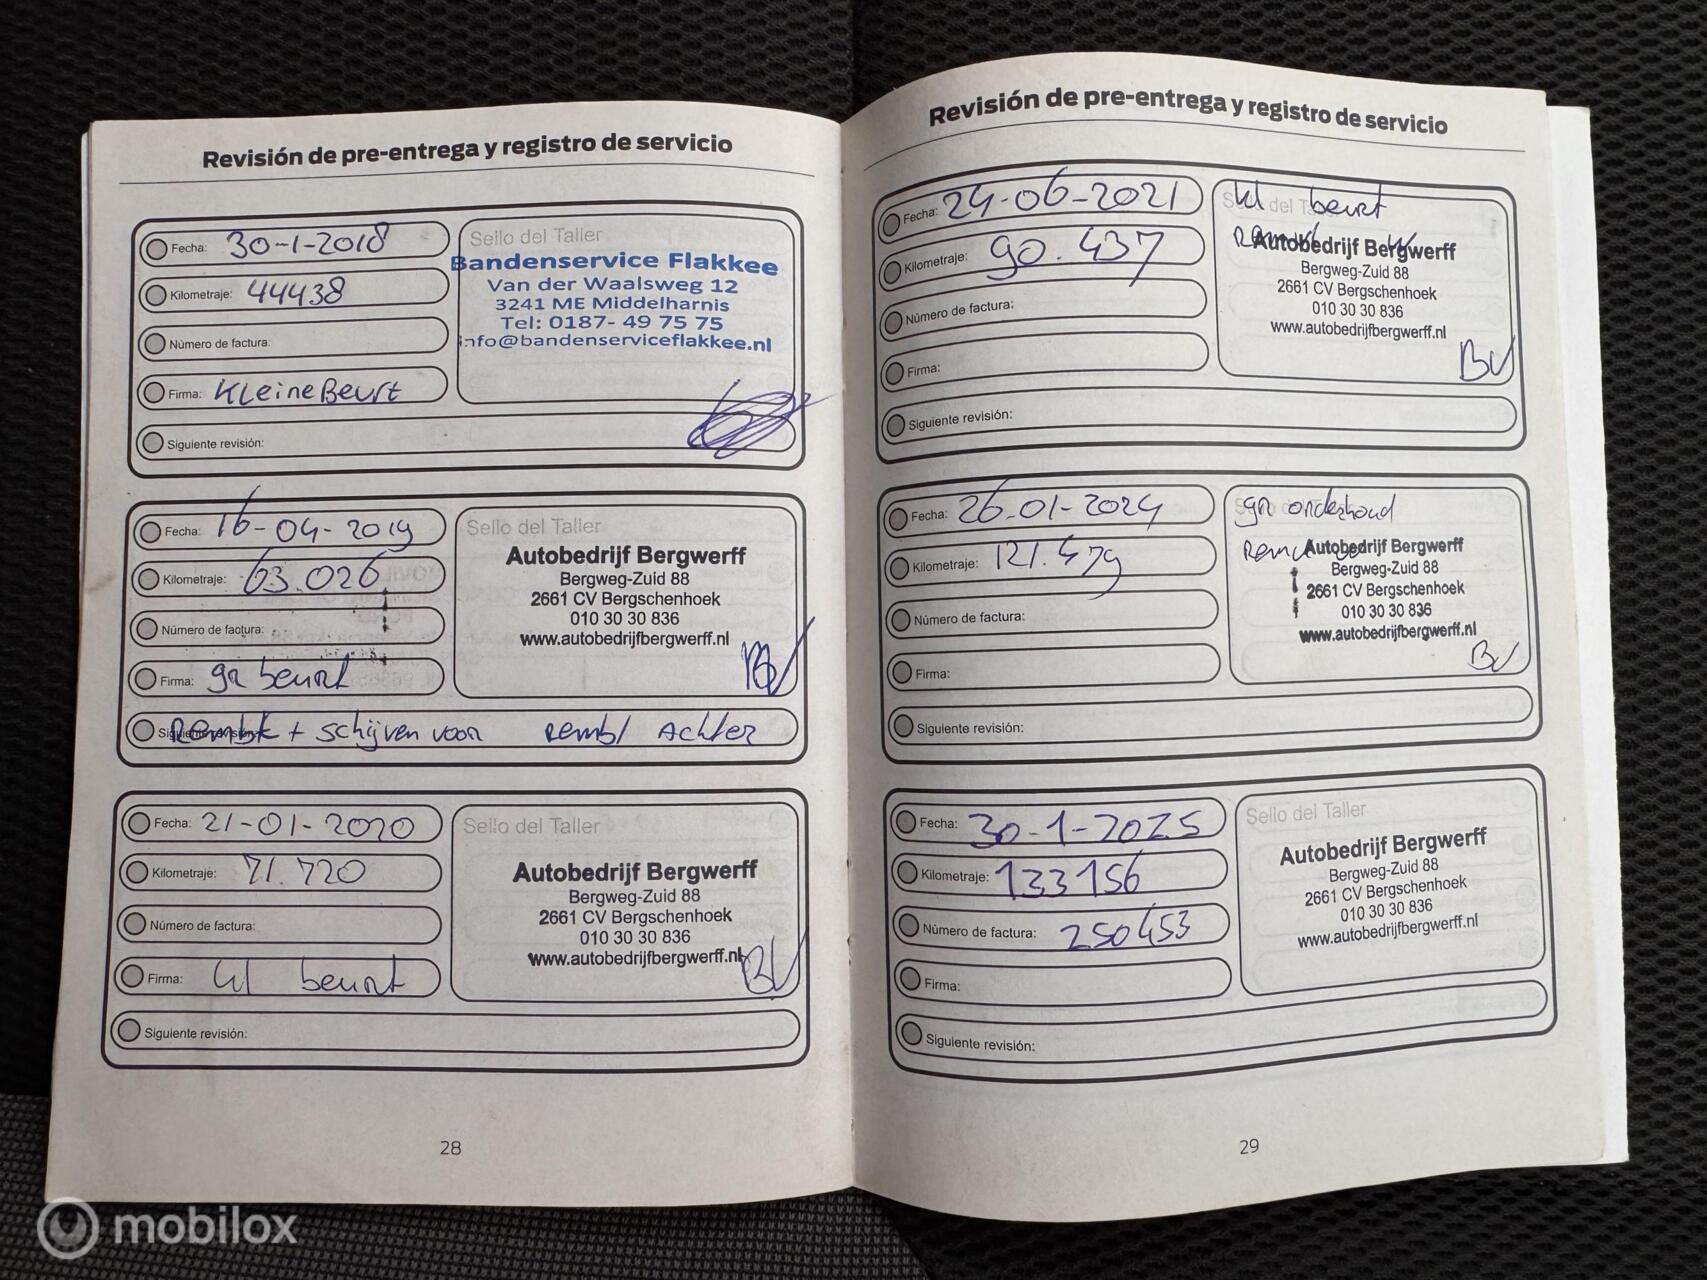 Revisión de pre-entrega y registro de servicio
Fecha: 30-1-2018
Kilometraje: 44438
Número de factura:
Firma: Kleine Beurt
Siguiente revisión:
Sello del Taller
Bandenservice Flakkee
Van der Waalsweg 12
3241 ME Middelharnis
Tel: 0187- 49 75 75
info@bandenserviceflakkee.nl
Fecha: 16-04-2019
Kilometraje: 63.026
Número de factura:
Firma: gr beurt
Siguiente revisión: Rembk + schijven voor rembl Achter
Sello del Taller
Autobedrijf Bergwerff
Bergweg-Zuid 88
2661 CV Bergschenhoek
010 30 30 836
www.autobedrijfbergwerff.nl
Fecha: 21-01-2020
Kilometraje: 71.720
Número de factura:
Firma: kl beurt
Siguiente revisión:
Sello del Taller
Autobedrijf Bergwerff
Bergweg-Zuid 88
2661 CV Bergschenhoek
010 30 30 836
www.autobedrijfbergwerff.nl
BV
28
Revisión de pre-entrega y registro de servicio
Fecha: 24-06-2021
Kilometraje: 90.437
Número de factura:
Firma:
Siguiente revisión:
Sello del Taller
kl beurt
Autobedrijf Bergwerff
Bergweg-Zuid 88
2661 CV Bergschenhoek
010 30 30 836
www.autobedrijfbergwerff.nl
BV
Fecha: 26-01-2024
Kilometraje: 121.479
Número de factura:
Firma:
Siguiente revisión:
gr onderhoud
Autobedrijf Bergwerff
Bergweg-Zuid 88
2661 CV Bergschenhoek
010 30 30 836
www.autobedrijfbergwerff.nl
BV
Fecha: 30-1-2025
Kilometraje: 133156
Número de factura: 250453
Firma:
Siguiente revisión:
Sello del Taller
Autobedrijf Bergwerff
Bergweg-Zuid 88
2661 CV Bergschenhoek
010 30 30 836
www.autobedrijfbergwerff.nl
29
mobilox